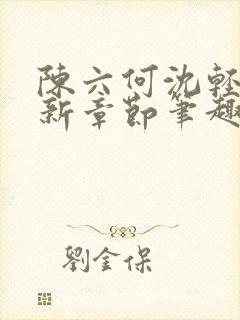 陳六何沈輕
新章節筆趣
劉金保